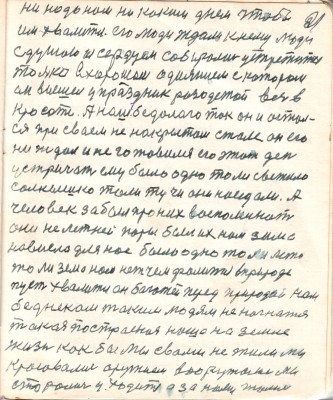 ни надо нам на каким днем чтобы
им хвалити. его люди ждали к нему люди
с душою и сердцем собирались
только в хорошом одиянием с котором
он вышел у праздник разодетой вся в
красоте. А наш бедолага ток он и остал-
ся при своем не накрытом столе он его
не ждал и не готовился его этот ден
устричат ему было одно то ли светило
солнышко то ли тучи они наседали. А
человек забыл про них воспоминат
они не летней поры была их нам зима
нависла для нас было одно то ли лета
то ли зема нам нет чем хвалити в природе
пуст хвалит он богатей перед природай нам
беднекам таким людям не
такая построеная нища на земле
жизн как бы мы с вами не жили мы
оружием вооружились мы
старались у ходит а за нами жизня